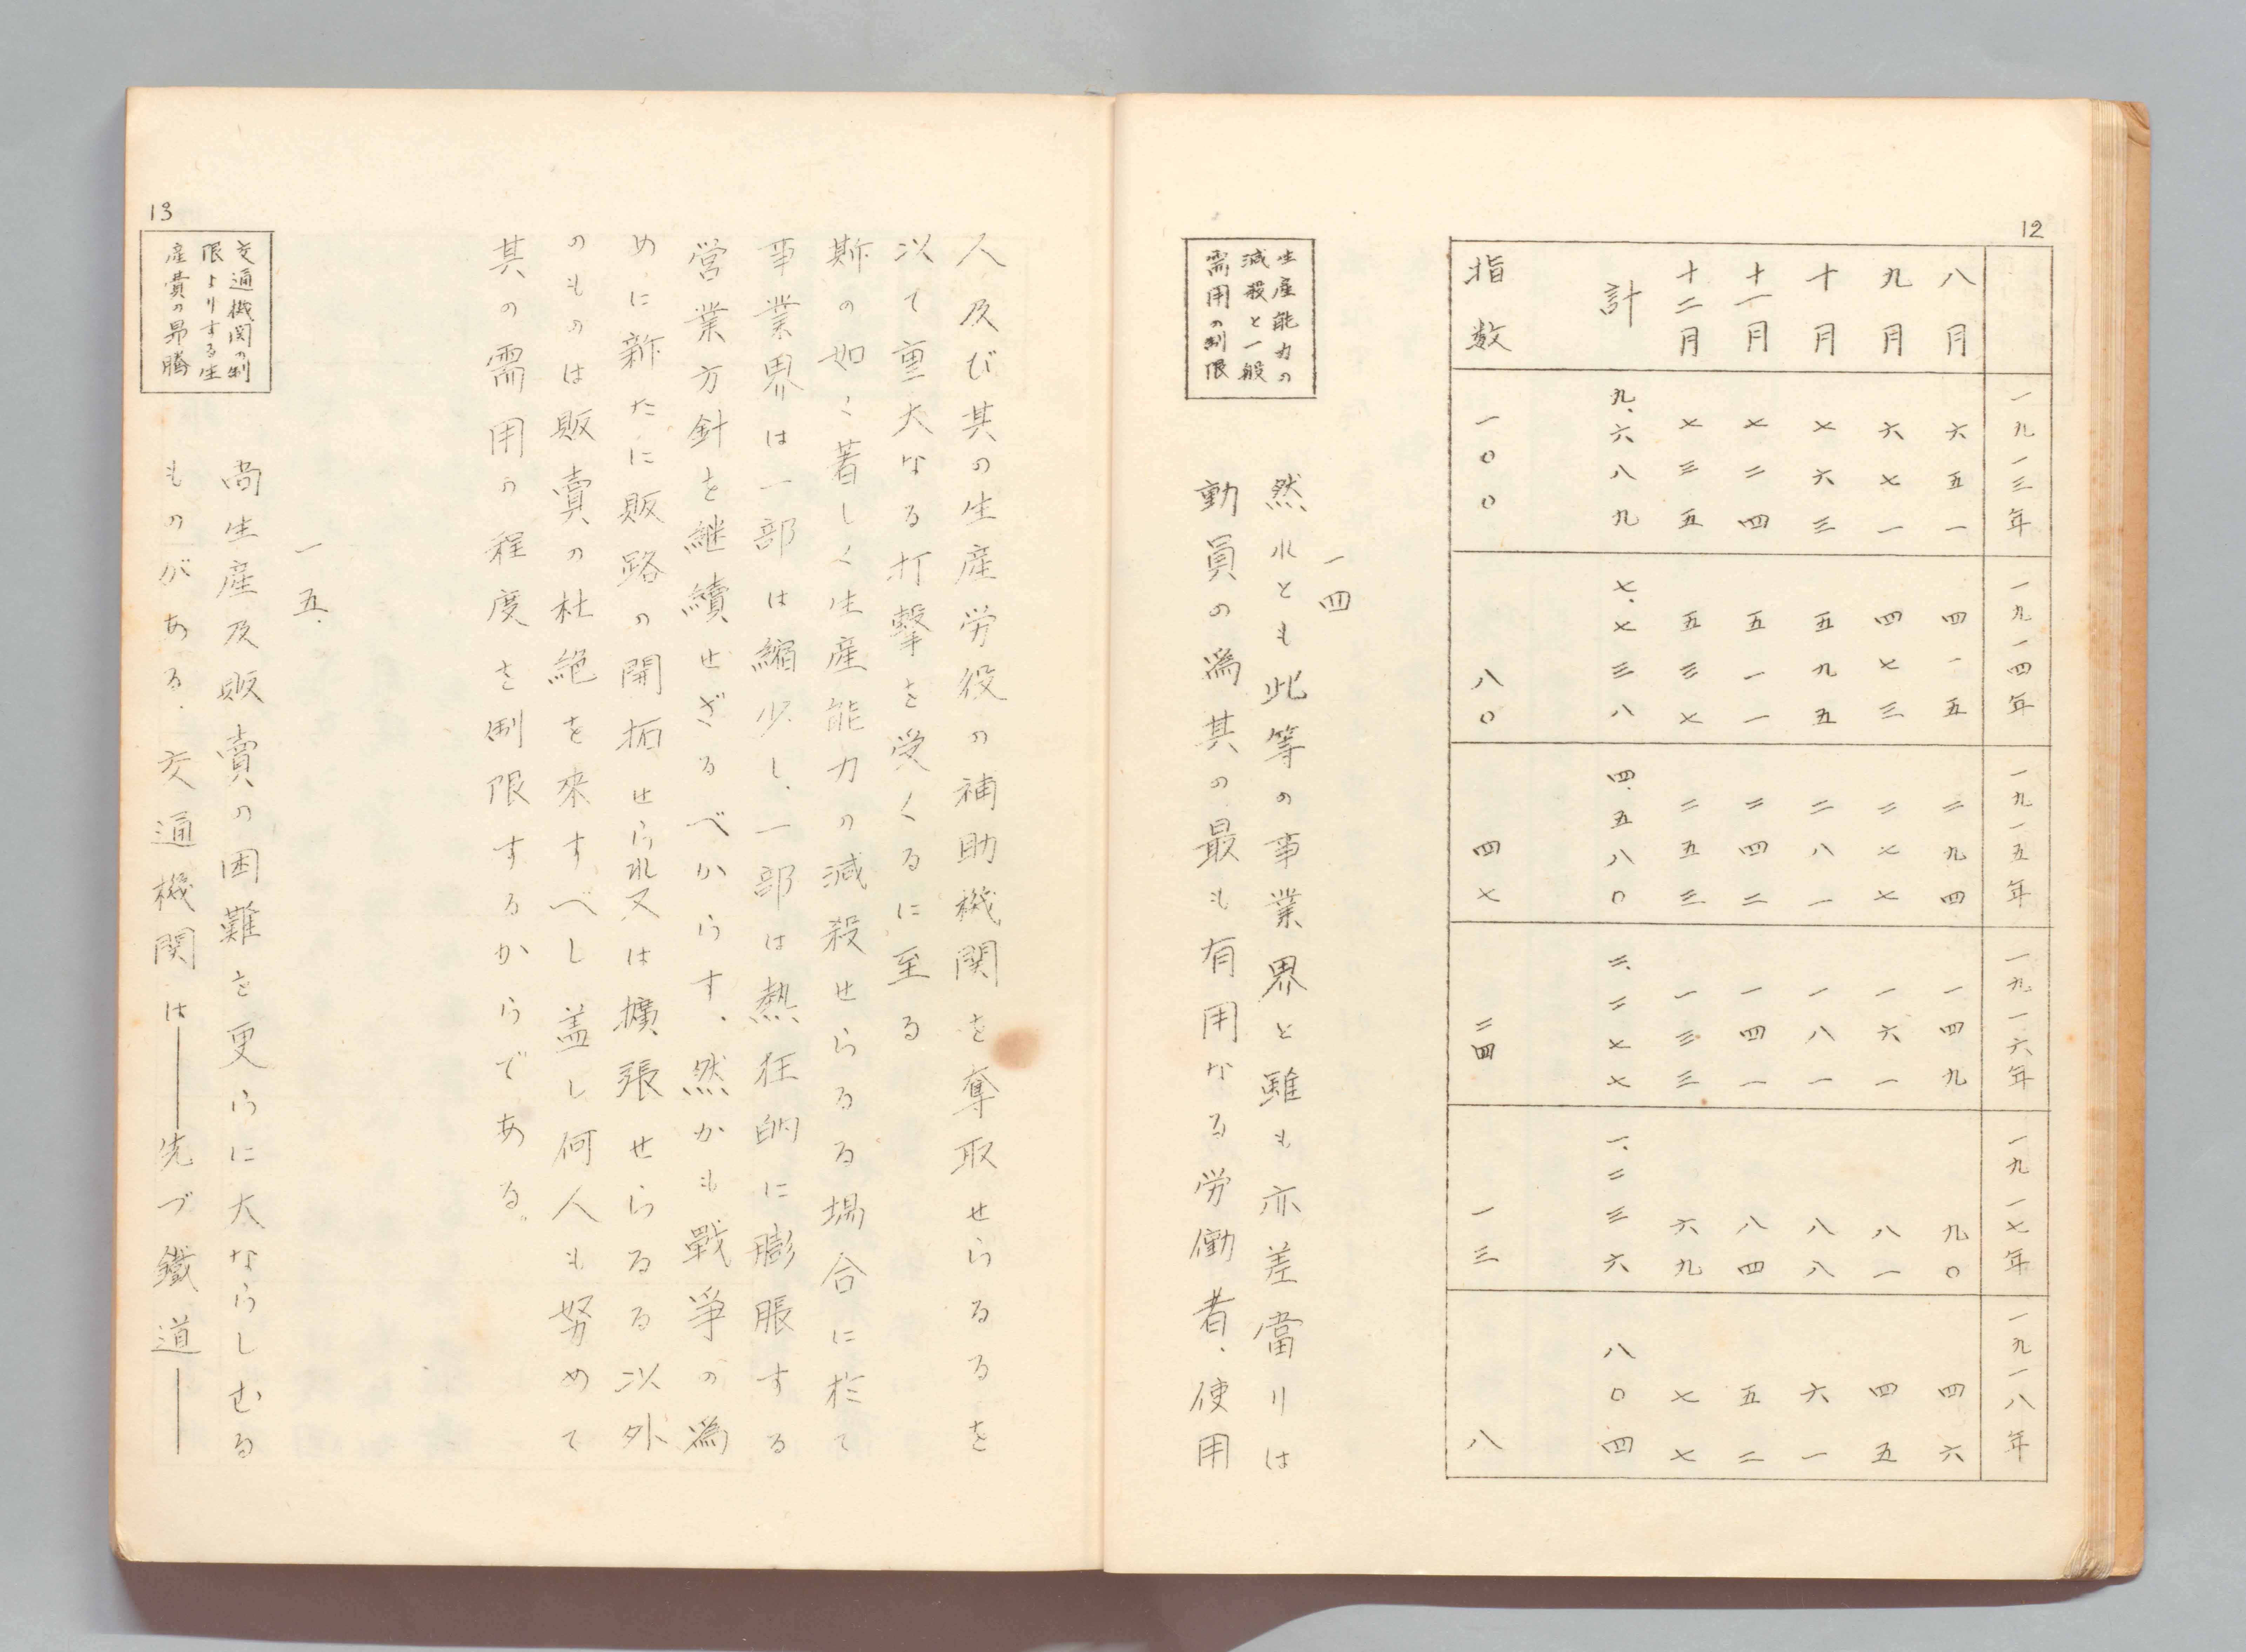 12
一九一三年 一九一四年 一九一五年 一九一六年 一九一七年 一九一八年
八月 六五一 四一五 二九四 一四九 九〇 四六
九月 六七一 四七三 二七七 一六一 八一 四五
十月 七六三 五九五 二八一 一八一 八八 六一
十一月 七二四 五一一 二四二 一四一 八四 五二
十二月 七三五 五三七 二五三 一三三 六九 七七
計 九、六八九 七、七三八 四、五八〇 二、二七七 一、二三六 八〇四
指数 一〇〇 八〇 四七 二四 一三 八
一四
生産能力の
減殺と一般
需用の制限
然れとも此等の事業界と雖も亦差當りは
動員の為其の最も有用なる労働者、使用
人及び其の生産労役の補助機関を奪取せらるるを
以て重大なる打撃を受くるに至る
斯の如く著しく生産能力の減殺せらるる場合に於て
事業界は一部は縮少し、一部は熱狂的に膨脹する
営業方針を継續せざるべからす、然かも戰爭の為
めに新たに販路の開拓せられ又は擴張せらるる以外
のものは販賣の杜絶を來すべし蓋し何人も努めて
其の需用の程度を制限するからである。
一五、
13
交通機関の制
限よりする生
産費の昂騰
尚生産及販賣の困難を更らに大ならしむる
ものがある、交通機関は――先づ鐵道――